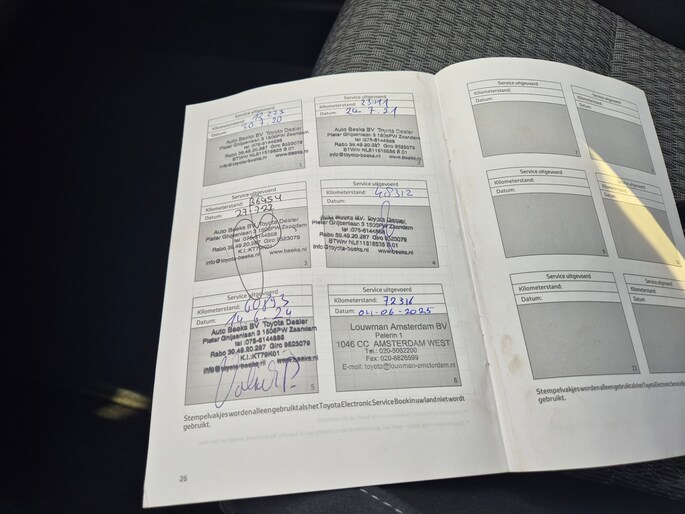 Service uitgevoerd
Kilometerstand:
Datum: 20.7.20
Auto Beeks BV Toyota Dealer
Pieter Ghijsenlaan 3 1506PW Zaandam
tel :075-6144868
Rabo 39.49.20.287 Giro 9523079
BTWnr NL811516835 B 01
info@toyota-beeks.nl www.beeks.nl
1
Service uitgevoerd
Kilometerstand:
Datum: 7.21
Auto Beeks BV Toyota Dealer
Pieter Ghijsenlaan 3 1506PW Zaandam
tel :075-6144868
Rabo 39.49.20.287 Giro 9523079
BTWnr NL811516835 B 01
info@toyota-beeks.nl www.beeks.nl
2
Service uitgevoerd
Kilometerstand: 36454
Datum:
Auto Beeks BV Toyota Dealer
Pieter Ghijsenlaan 3 1506PW Zaandam
tel :075-6144868
Rabo 39.49.20.287 Giro 9523079
K.I.:KT79K01
info@toyota-beeks.nl www.beeks.nl
3
Service uitgevoerd
Kilometerstand: 48312
Datum:
Auto Beeks BV Toyota Dealer
Pieter Ghijsenlaan 3 1506PW Zaandam
tel :075-6144868
Rabo 39.49.20.287 Giro 9523079
BTWnr NL811516835 B 01
info@toyota-beeks.nl www.beeks.nl
4
Service uitgevoerd
Kilometerstand:
Datum: 14.6.24
Auto Beeks BV Toyota Dealer
Pieter Ghijsenlaan 3 1506PW Zaandam
tel :075-6144868
Rabo 39.49.20.287 Giro 9523079
K.I.:KT79K01
info@toyota-beeks.nl www.beeks.nl
5
Service uitgevoerd
Kilometerstand: 72316
Datum: 04-06-2025
Louwman Amsterdam BV
Palerin 1
1046 CC AMSTERDAM WEST
Tel.: 020-5082200
Fax: 020-6826599
E-mail: toyota@louwman-amsterdam.nl
6
Stempelvakjes worden alleen gebruikt als het Toyota Electronic Service Book in uw land niet wordt
gebruikt.
26
Service uitgevoerd
Kilometerstand:
Datum:
7
Service uitgevoerd
Kilometerstand:
Datum:
Service uitgevoerd
Kilometerstand:
Datum:
9
Service uitgevoerd
Kilometerstand:
Datum:
Service uitgevoerd
Kilometerstand:
Datum:
11
Service uitgevoerd
Kilometerstand:
Datum:
Stempelvakjes worden alleen gebruikt als het Toyota Electronic Service
gebruikt.